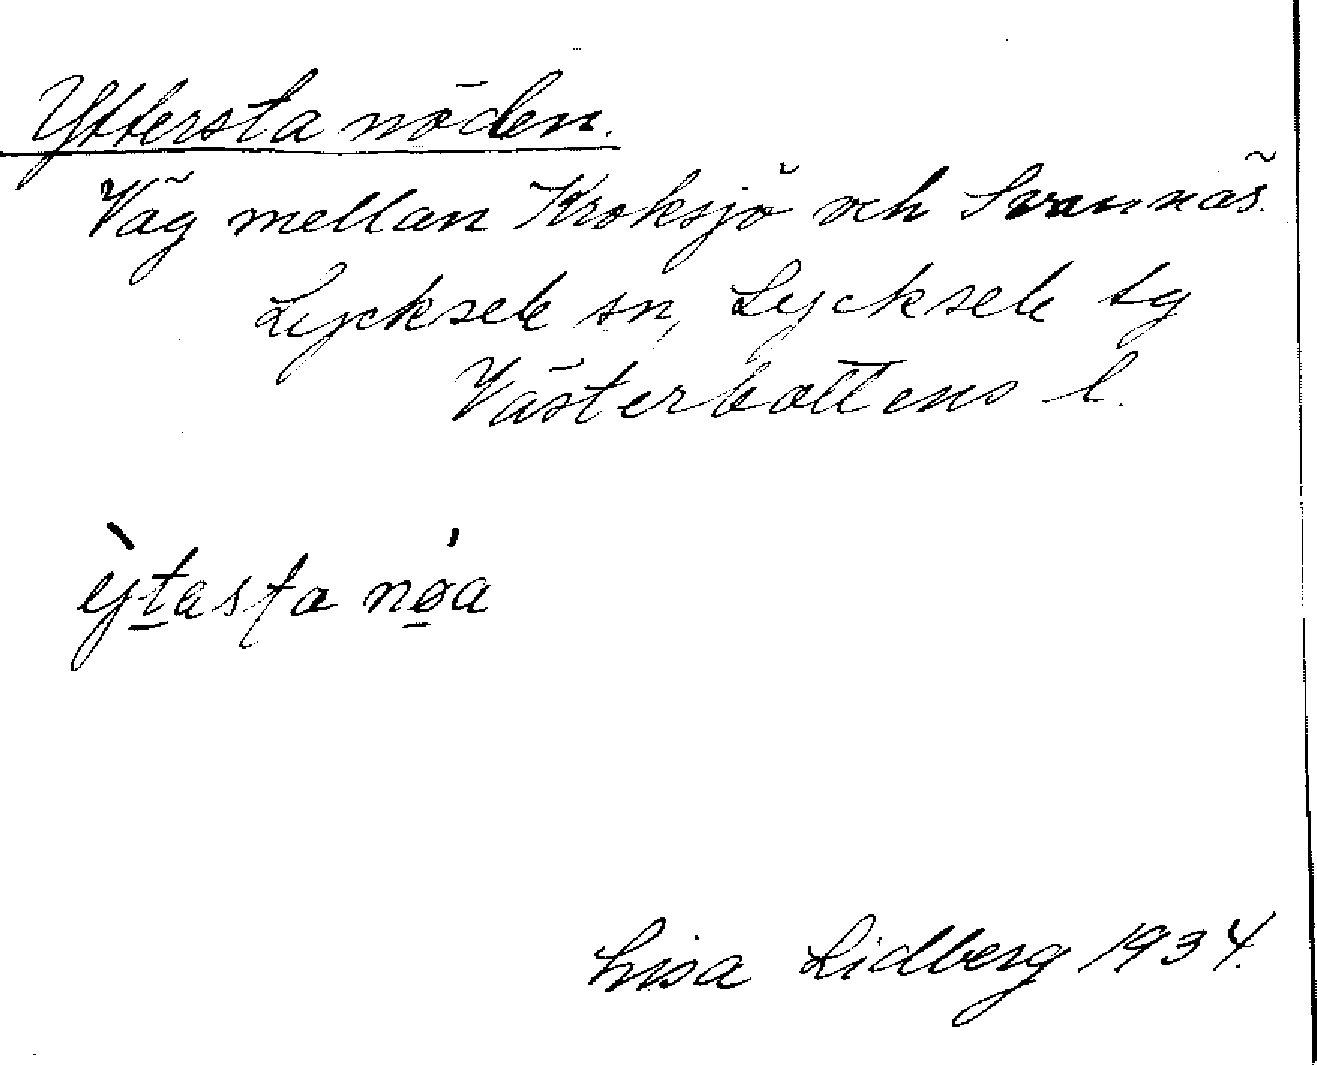 Yttersta nöden.
Väg mellan Kroksjö och Svannäs.
Lycksele sn, Lycksele tg
Västerbottens l.
ỳt̲asta nǿ̲a
Lisa Lidberg 1934.